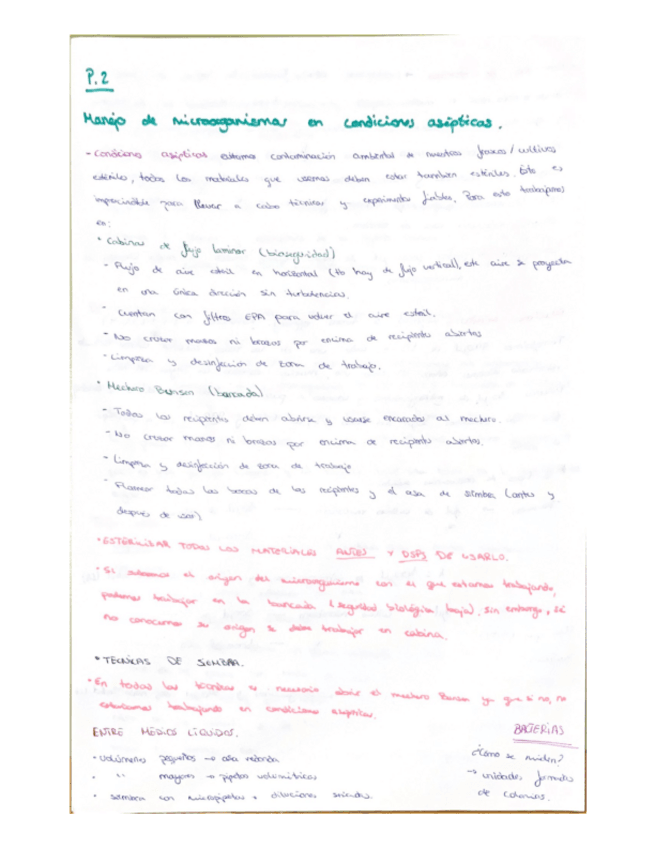 P.2
Manejo de microorganismos en condiciones asépticas.
- Condiciones asépticas contaminación ambiental de nuestros frascos / cultivos
estériles, todos los materiales que usemos deben estar también estériles. Esto es
imprescindible para llevar a cabo técnicas y experimentos fiables. Para esto trabajamos
en:
• Cabinas de flujo laminar (bioseguridad)
- Flujo de aire estéril en horizontal (tb hay de flujo vertical), este aire se proyecta
en una única dirección sin turbulencias.
- Cuentan con filtros EPA para volver el aire estéril.
- No cruzar manos ni brazos por encima de recipientes abiertos
- Limpieza y desinfección de zona de trabajo.
• Mechero Bunsen (bancada)
- Todos los recipientes deben abrirse y usarse encarados al mechero.
- No cruzar manos ni brazos por encima de recipientes abiertos.
- Limpieza y desinfección de zona de trabajo
- Flamear todas las bocas de los recipientes y el asa de siembra (antes y
después de usar)
• ESTERILIZAR TODOS LOS MATERIALES ANTES Y DSPS DE USARLO.
• Si sabemos el origen del microorganismo con el que estamos trabajando,
podemos trabajar en la bancada (seguridad biológica baja), sin embargo, si
no conocemos su origen se debe trabajar en cabina.
• TÉCNICAS DE SIEMBRA.
• En todas las técnicas es necesario abrir el mechero Bunsen ya que si no, no
estaríamos trabajando en condiciones asépticas.
ENTRE MEDIOS LÍQUIDOS.
- volúmenes pequeños → asa redonda
- " mayores → pipetas volumétricas
- siembra con micropipetas + diluciones seriadas.
BACTERIAS
¿Cómo se miden?
→ unidades formadoras
de colonias.